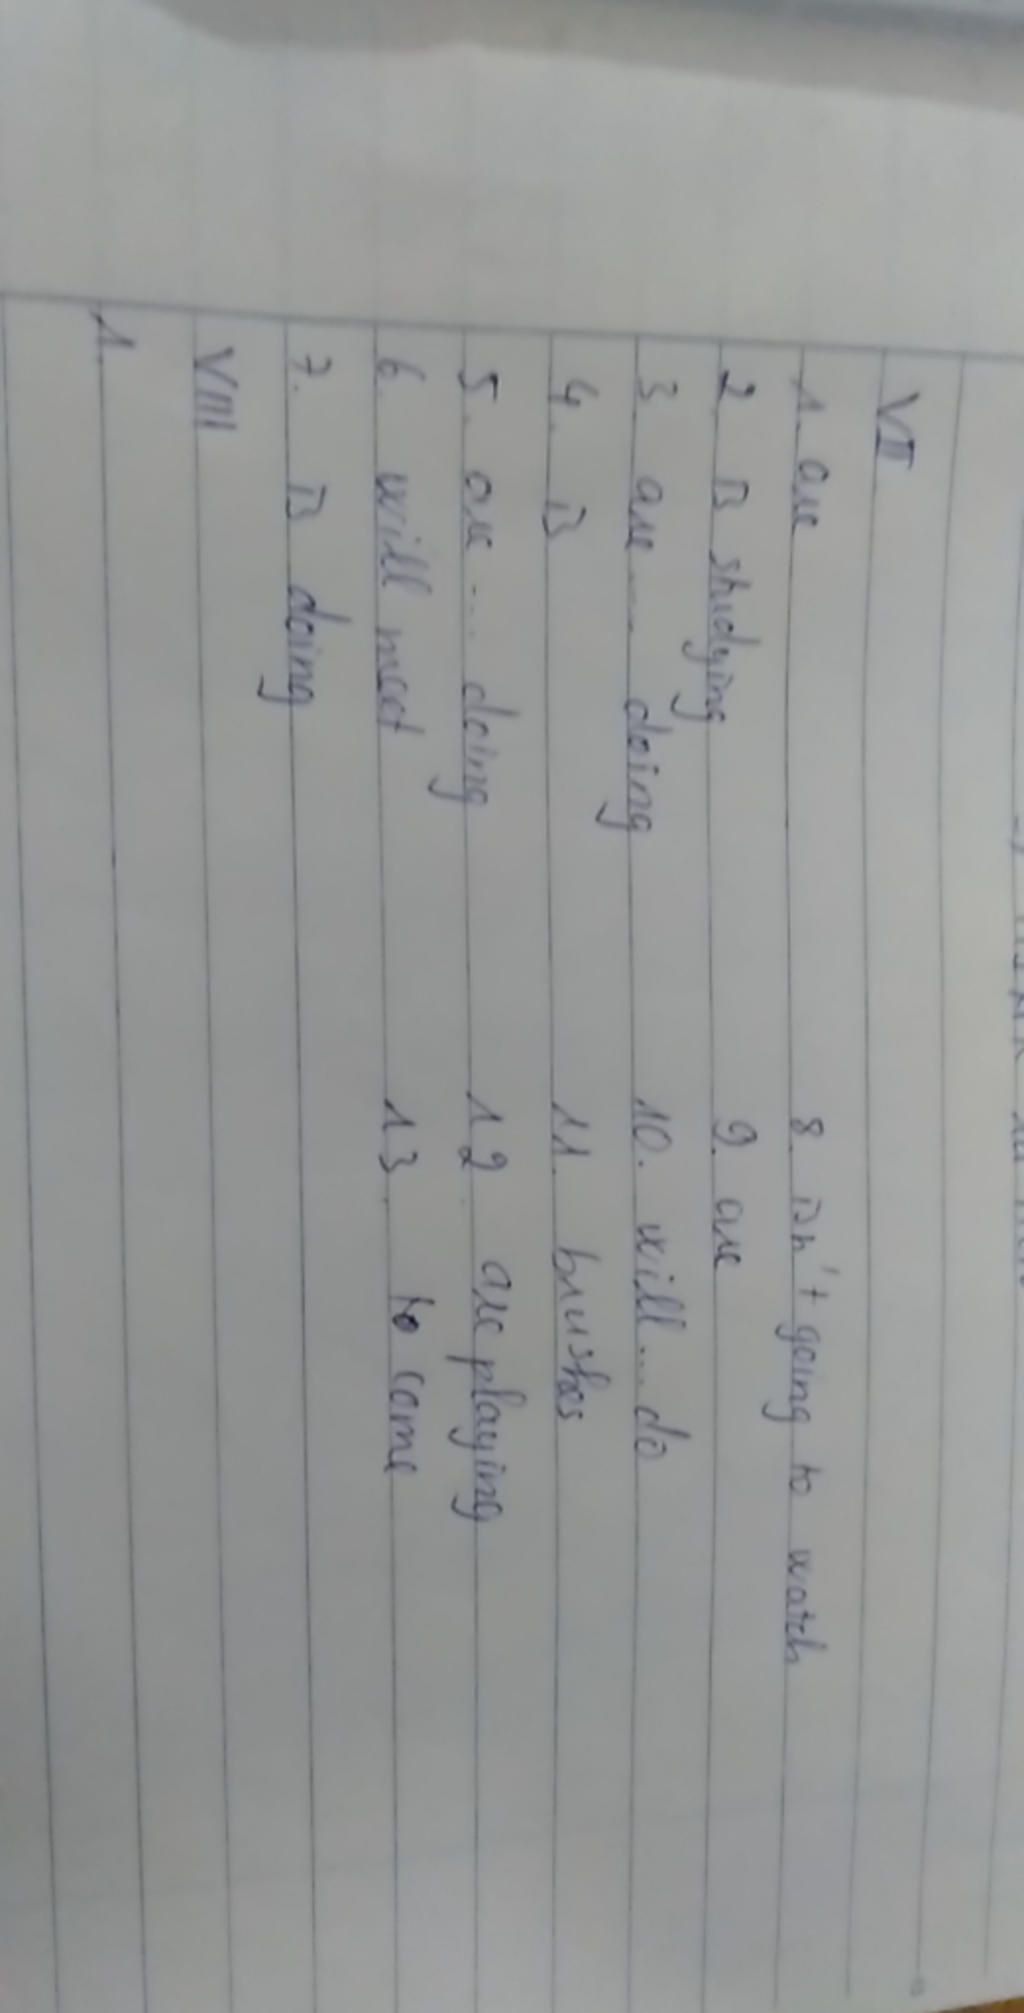 VII
1. are 8. isn't going to watch
2. is studying 9. are
3 are ... doing 10. will ... do
4. is 11. brushes
5. are ... doing 12. are playing
6. will meet 13. to come
7. is doing
VIII
1.